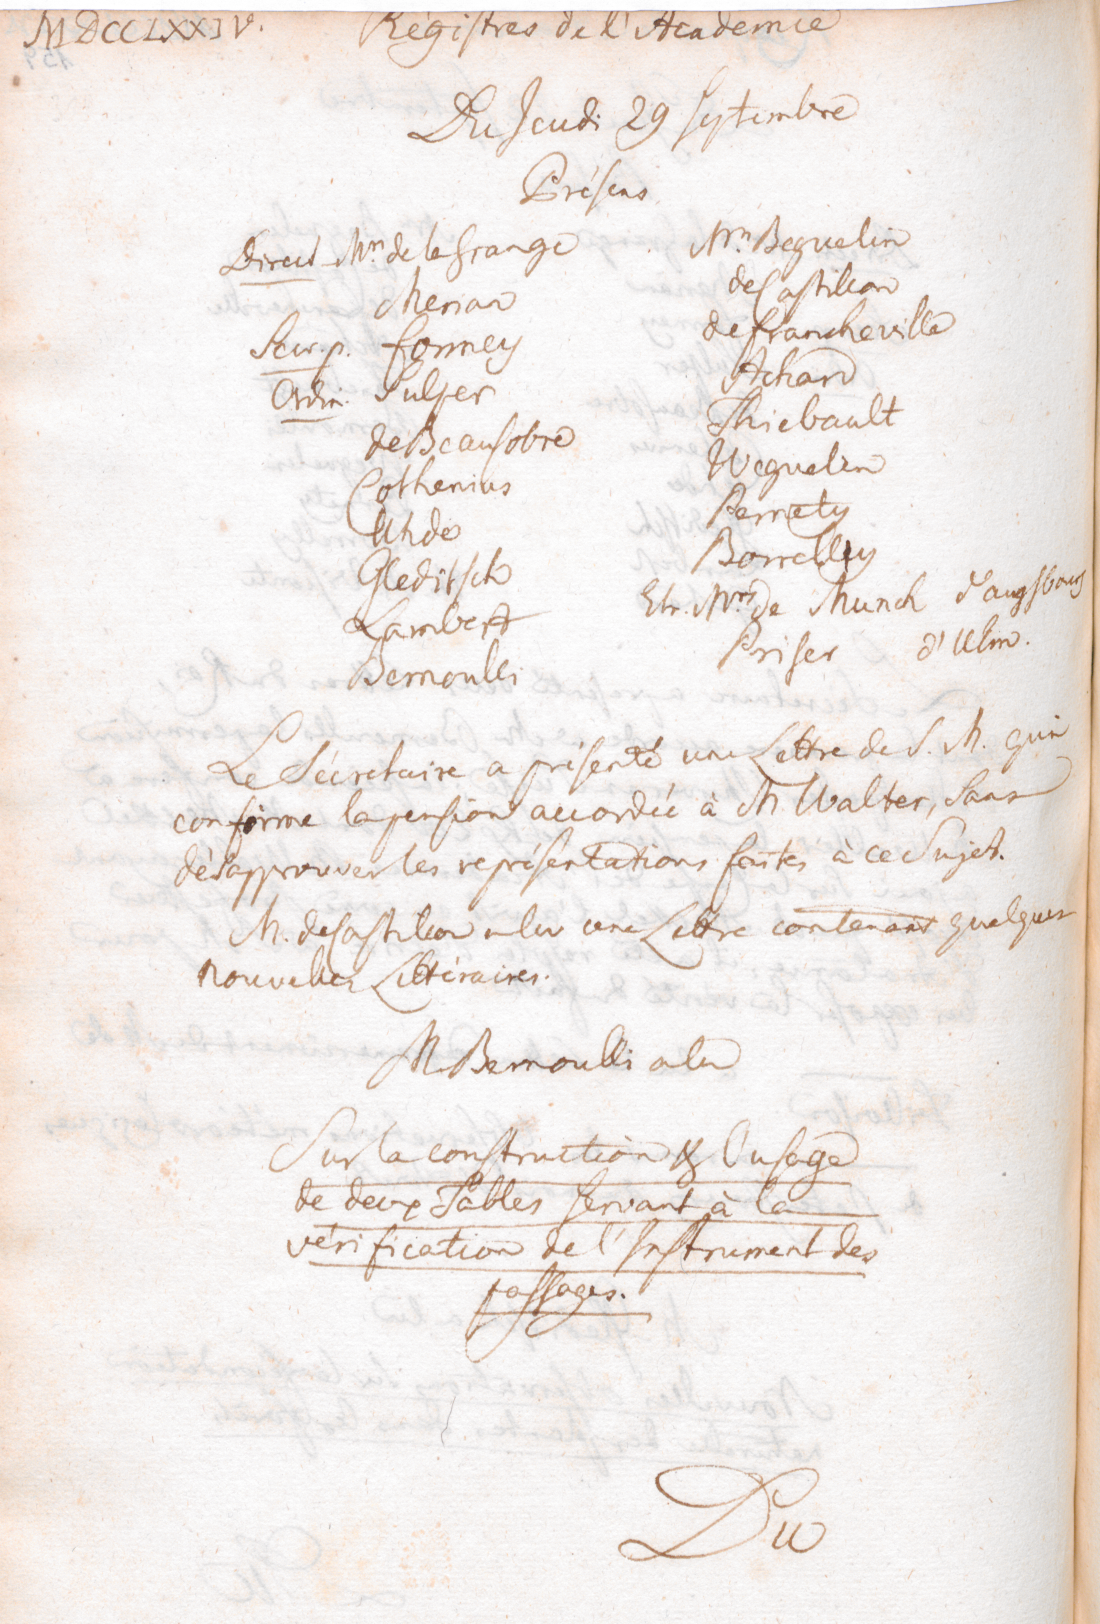 MDCCLXXIV. Régistres de l'Academie
Du Jeudi 29 Septembre
Présens
Direct. Mrs. de la Grange
Merian
Secr. p. Formey
Ordin. Sulzer
de Beausobre
Cothenius
Uhde
Gleditsch
Lambert
Bernoulli
Mrs. Beguelin
de Castillon
de Francheville
Achard
Thiebault
Weguelin
Pernety
Borrelly
Etr. Mrs. de Munch d'Augsbourg
Priser d'Ulm.
Le Sécretaire a présenté une Lettre de S. M. qui
confirme la pension accordée à M Walter, sans
désapprouver les représentations faites à ce Sujet.
M. de Castillon a lu une Lettre contenant quelques
nouvelles Littéraires.
M Bernoulli a lu
Sur la construction & l'usage
de deux Tables servant à la
vérification de l'Instrument des
passages.
Du